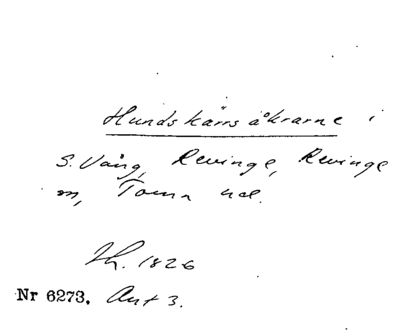 Hundskärrsåkrarne i
S. Vång, Revinge, Revinge
sn, Torna hd.
Lh. 1826
Nr 6273. Akt 3.